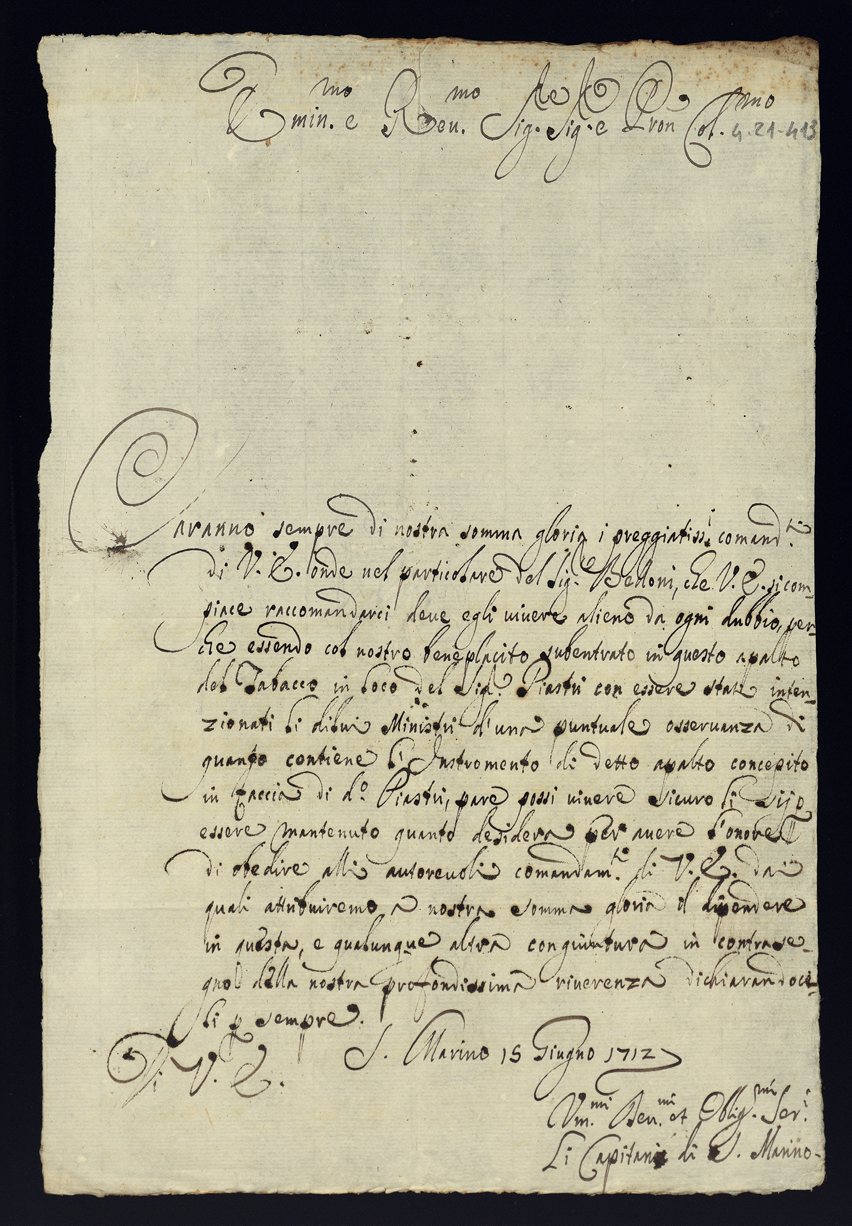 Emin.mo e Reu.mo Sig.re Sig.re e Pron Col.mo
4.21-413
Saranno sempre di nostra somma gloria i preggiatiss.i comand.ti
di V. E. onde nel particolare del Sig.re Belloni, che V. E. si com-
piace raccomandarci deue egli uiuere alieno da ogni dubbio, per-
che essendo col nostro beneplacito subentrato in questo apalto
del Tabacco in loco del Sig.r Piastri con essere stati inten-
zionati li di lui Ministri d'una puntuale osseruanza di
quanto contiene l'Instromento di detto apalto concepito
in faccia di d.o Piastri, pare possi uiuere sicuro di
essere mantenuto quanto desidera per auere l'onore
di obedire alli autoreuoli comandam.ti di V. E. dai
quali attribuiremo a nostra somma gloria il dipendere
in questa, e qualunque altra congiuntura in contrase-
gno della nostra profondissima riuerenza dichiarandoce-
li p sempre.
S. Marino 15 Giugno 1712
Di V. E.
Vm.mi Deu.mi et Oblig.mi Ser.i
Li Capitani di S. Marino